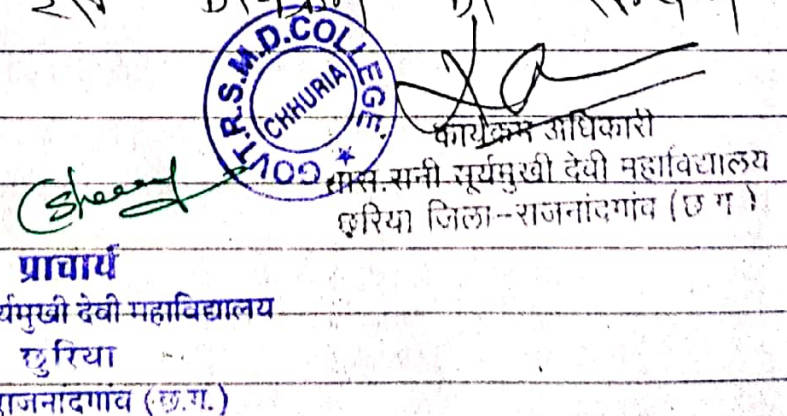 GOVT.R.S.M.D.COLLEGE
CHHURIA
कार्यक्रम अधिकारी
शास.रानी सूर्यमुखी देवी महाविद्यालय
छुरिया जिला-राजनांदगांव (छ ग )
प्राचार्य
र्यमुखी देवी महाविद्यालय
छुरिया
राजनांदगांव (छ.ग.)